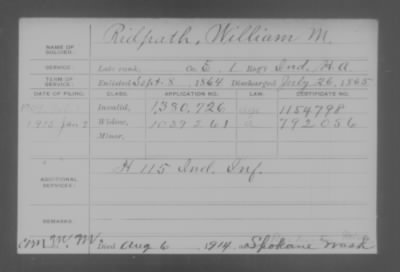 NAME OF SOLDIER: Ridpath, William M.
SERVICE: Late rank, Co. E, 1 Reg't Ind. H A
TERM OF SERVICE: Enlisted Sept. 8, 1864 Discharged July 26, 1865
DATE OF FILING. CLASS. APPLICATION NO. LAW. CERTIFICATE NO.
Invalid, 1,380,726 1154798
1915 Jan 2 Widow, 1039261 792086
Minor,
ADDITIONAL SERVICES: H 115 Ind. Inf.
REMARKS:
Died Aug 6 1914, at Spokane Wash